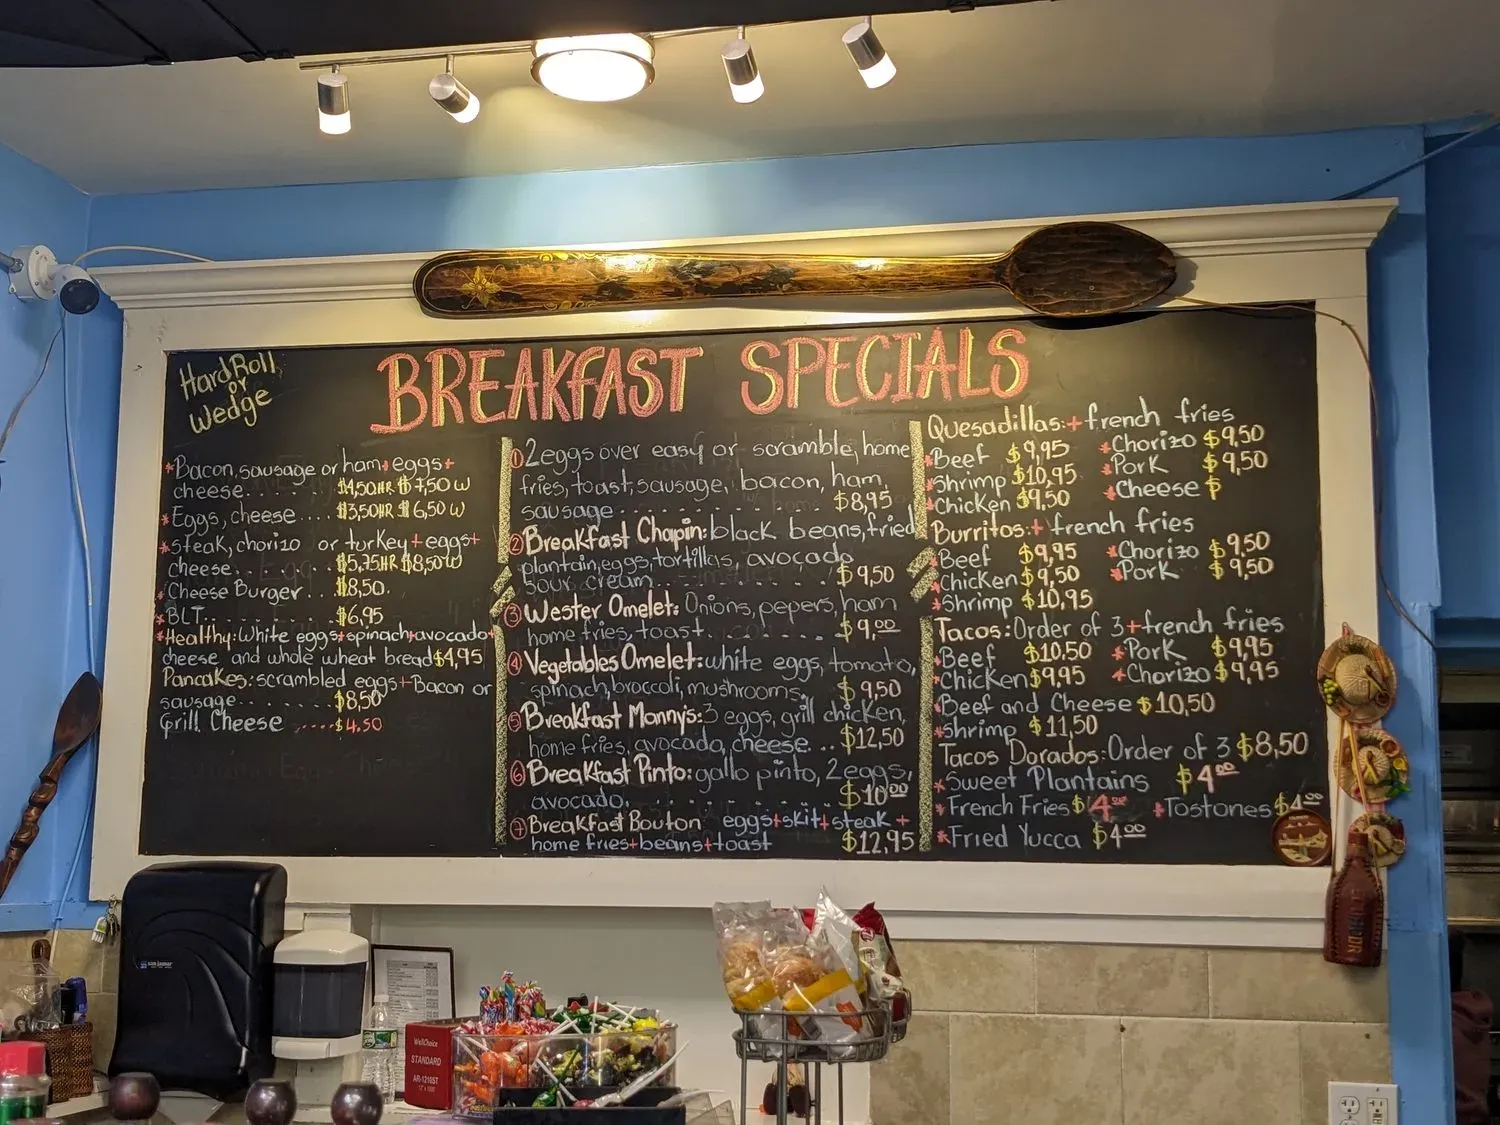 BREAKFAST SPECIALS
Hard Roll
or
Wedge
*Bacon, sausage or ham+eggs+
cheese........ $4,50HR $7,50 W
*Eggs, cheese .... $3,50HR $6,50 W
*steak, chorizo or turkey+eggs+
cheese... $5,75HR $8,50W
*Cheese Burger... $8,50.
*BLT......... $6,95
*Healthy:White eggs+spinach+avocado+
cheese and whole wheat bread $4,95
Pancakes:scrambled eggs+Bacon or
sausage....... $8,50
Grill Cheese ..... $4.50
① 2 eggs over easy or scramble, home
fries, toast, sausage, bacon, ham,
sausage............ $8,95
② Breakfast Chapin: black beans, fried
plantain, eggs, tortillas, avocado
sour cream........ $9,50
③ Wester Omelet: Onions, pepers, ham
home fries, toast........ $9,00
④ Vegetables Omelet: white eggs, tomato,
spinach, broccoli, mushrooms. $9,50
⑤ Breakfast Monny's: 3 eggs, grill chicken,
home fries, avocado, cheese... $12,50
⑥ Breakfast Pinto: gallo pinto, 2 eggs,
avocado........... $10 00
⑦ Breakfast Bouton eggs+skit+steak+
home fries+beans+toast $12,95
Quesadillas:+french fries
*Beef $9,95 *Chorizo $9,50
*Shrimp $10,95 *Pork $9,50
*Chicken $9,50 *Cheese $
Burritos:+french fries
*Beef $9,95 *Chorizo $9,50
*Chicken $9,50 *Pork $9,50
*Shrimp $10,95
Tacos:Order of 3+french fries
*Beef $10,50 *Pork $9,95
*Chicken $9,95 *Chorizo $9,95
*Beef and Cheese $10,50
*Shrimp $11,50
Tacos Dorados:Order of 3 $8,50
*Sweet Plantains $4 00
*French Fries $4 00 *Tostones $4 00
*Fried Yucca $4 00
san jamar
WellChoice
STANDARD
AR-1216ST